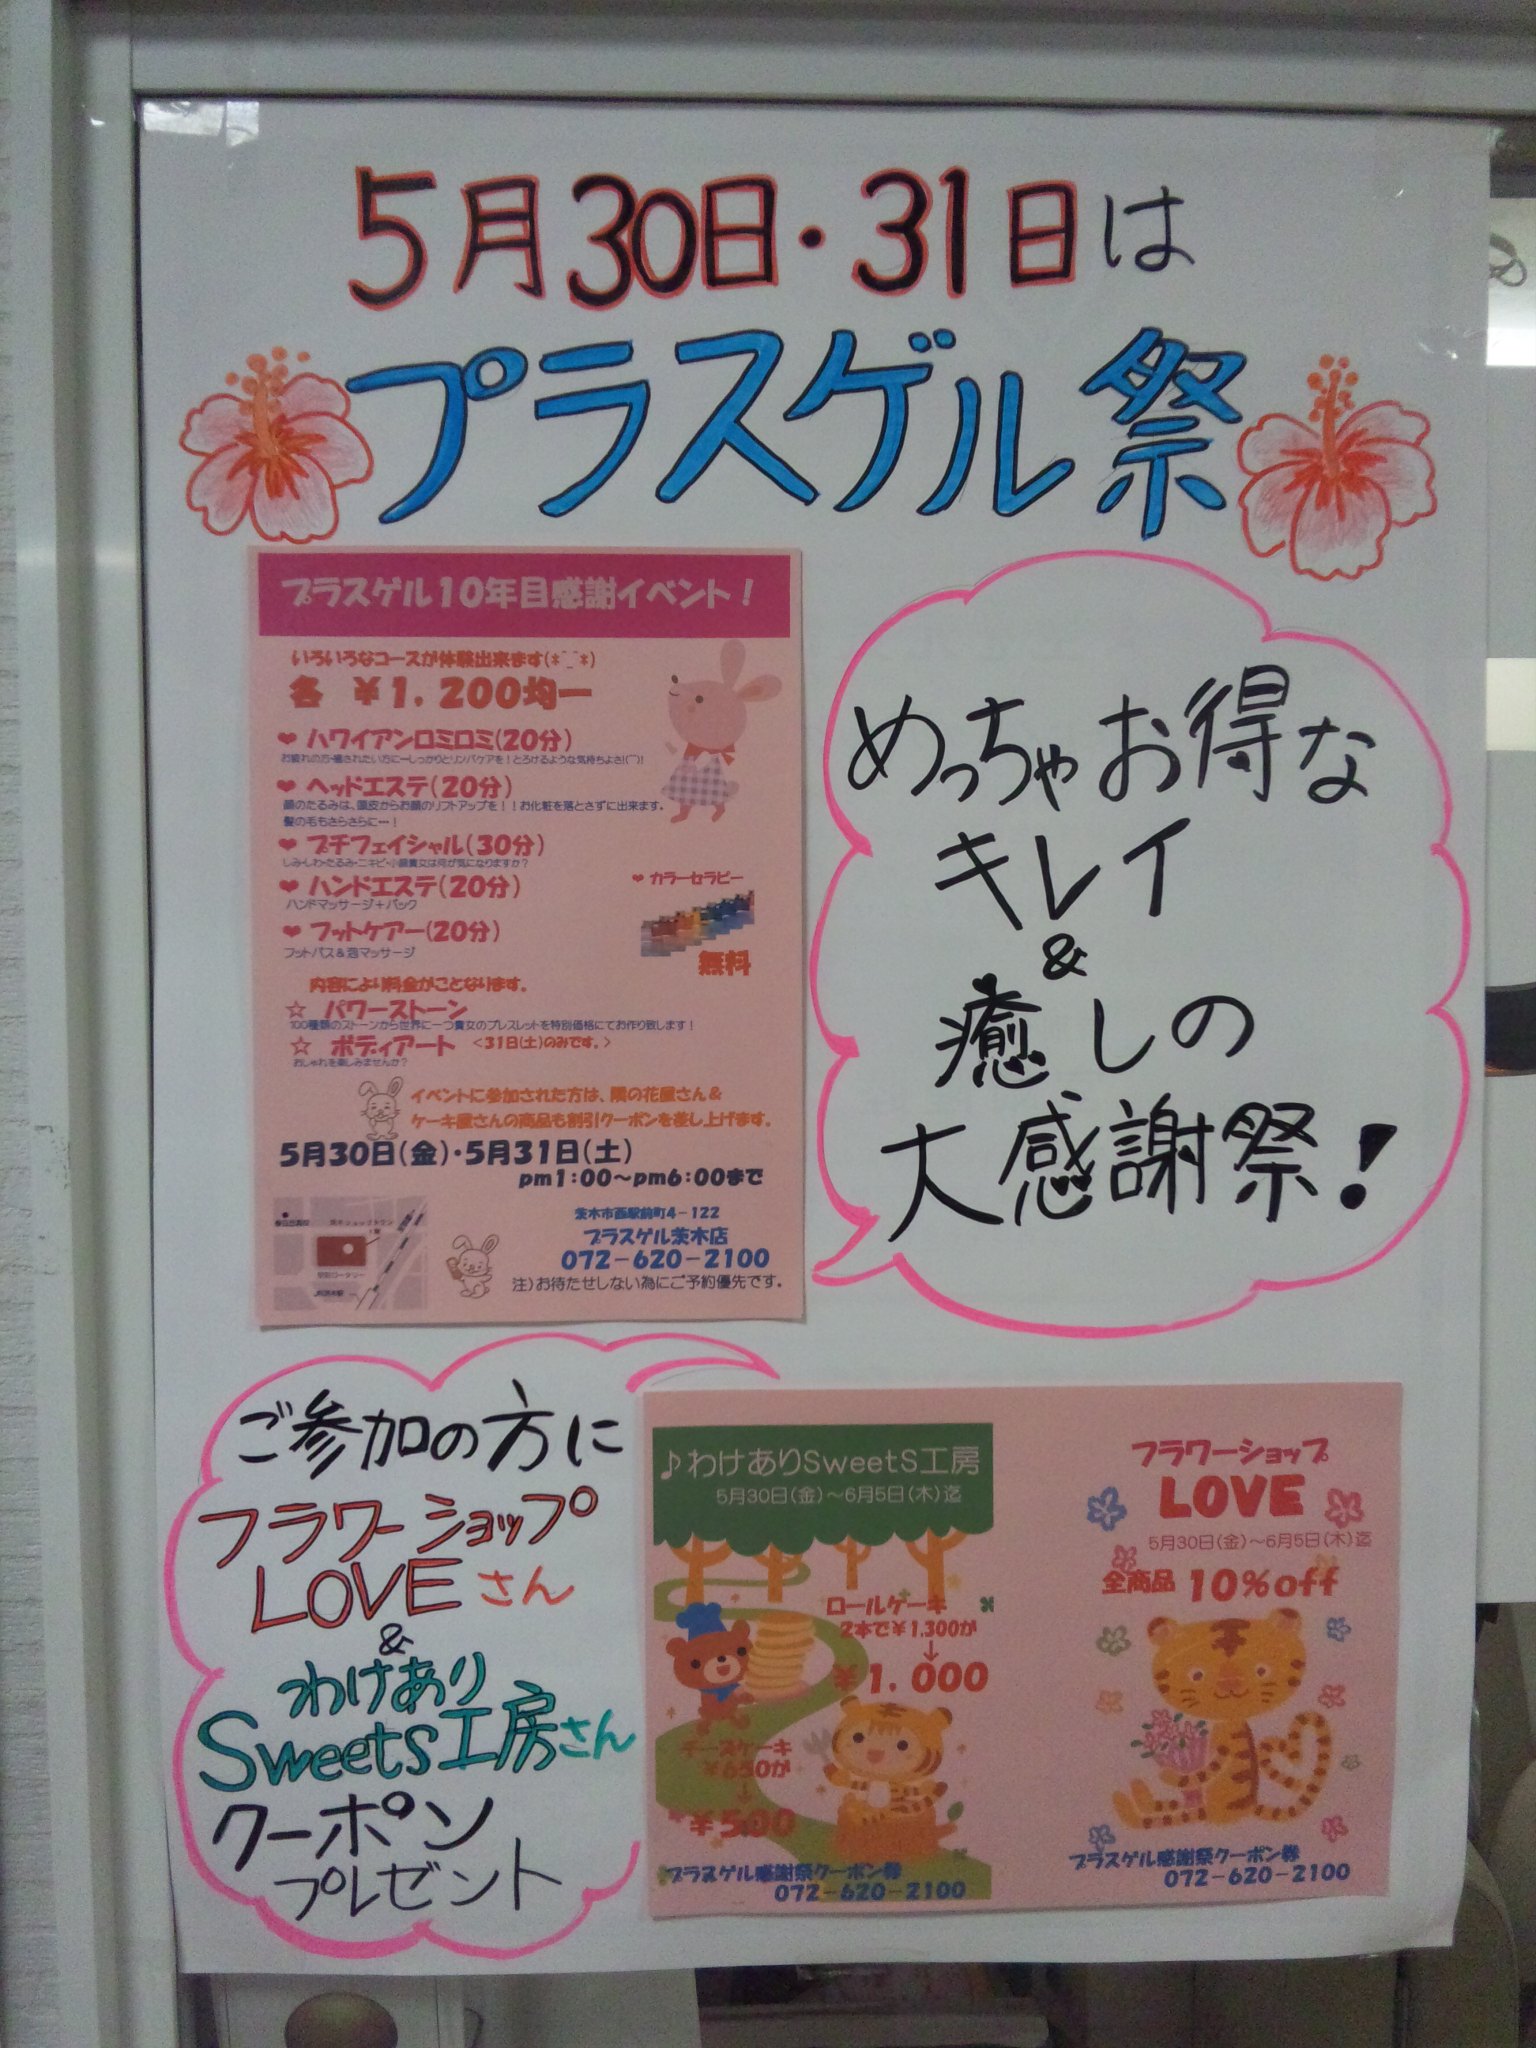 5月30日・31日は
プラスゲル祭
プラスゲル10年目感謝イベント！
いろいろなコースが体験出来ます(*^_^*)
各 ￥1,200均一
❤ ハワイアンロミロミ(20分)
お疲れの方・癒されたい方に…しっかりとリンパケアを！とろけるような気持ちよさ!(￣)!
❤ ヘッドエステ(20分)
顔のたるみは、頭皮からお顔のリフトアップを！！お化粧を落とさずに出来ます。
髪の毛もさらさらに…！
❤ プチフェイシャル(30分)
しみ・しわ・たるみ・ニキビ・小顔貴女は何が気になりますか？
❤ ハンドエステ(20分)
ハンドマッサージ＋パック
❤ フットケアー(20分)
フットバス＆泡マッサージ
❤ カラーセラピー
無料
内容により料金がことなります。
☆ パワーストーン
100種類のストーンから世界に一つ貴女のブレスレットを特別価格にてお作り致します！
☆ ボディアート <31日(土)のみです。>
おしゃれを楽しみませんか？
イベントに参加された方は、隣の花屋さん＆
ケーキ屋さんの商品も割引クーポンを差し上げます。
5月30日(金)・5月31日(土)
pm1:00～pm6:00まで
茨木市西駅前町4-122
プラスゲル茨木店
072-620-2100
注)お待たせしない為にご予約優先です。
めっちゃお得な
キレイ
&
癒しの
大感謝祭!
ご参加の方に
フラワーショップ
LOVEさん
&
わけあり
Sweets工房さん
クーポン
プレゼント
♪わけありSweetS工房
5月30日(金)～6月5日(木)迄
ロールケーキ
2本で￥1,300が
↓
￥1,000
チーズケーキ
￥650が
↓
￥500
プラスゲル感謝祭クーポン券
072-620-2100
フラワーショップ
LOVE
5月30日(金)～6月5日(木)迄
全商品 10%off
プラスゲル感謝祭クーポン券
072-620-2100